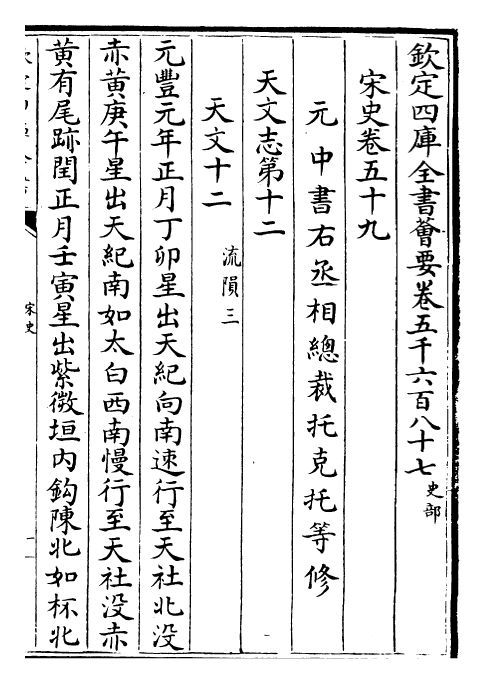 欽定四庫全書薈要卷五千六百八十七史部
宋史卷五十九
元中書右丞相總裁托克托等修
天文志第十二
天文十二
流隕三
元豐元年正月丁卯星出天紀向南速行至天社北没
赤黄庚午星出天紀南如太白西南慢行至天社没赤
黄有尾跡閏正月壬寅星出紫微垣内鈎陳北如杯北
宋史